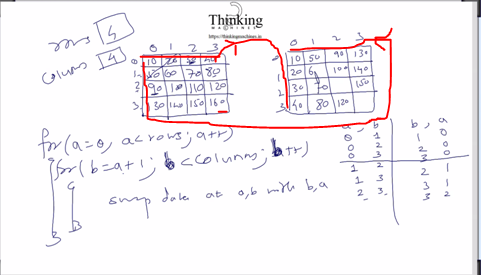 Thinking
MACHINES
https://thinkingmachines.in
rows 4
column 4
0 1 2 3
0 10 20 30 40
1 50 60 70 80
2 90 100 110 120
3 130 140 150 160
0 1 2 3
0 10 50 90 130
1 20 6 100 140
2 30 70 150
3 40 80 120
for(a=0, a<rows; a++)
{for(b=a+1; b<columns; b++)
{ swap data at a,b with b,a
}
}
a b b a
0 1 1 0
0 2 2 0
0 3 3 0
1 2 2 1
1 3 3 1
2 3 3 2